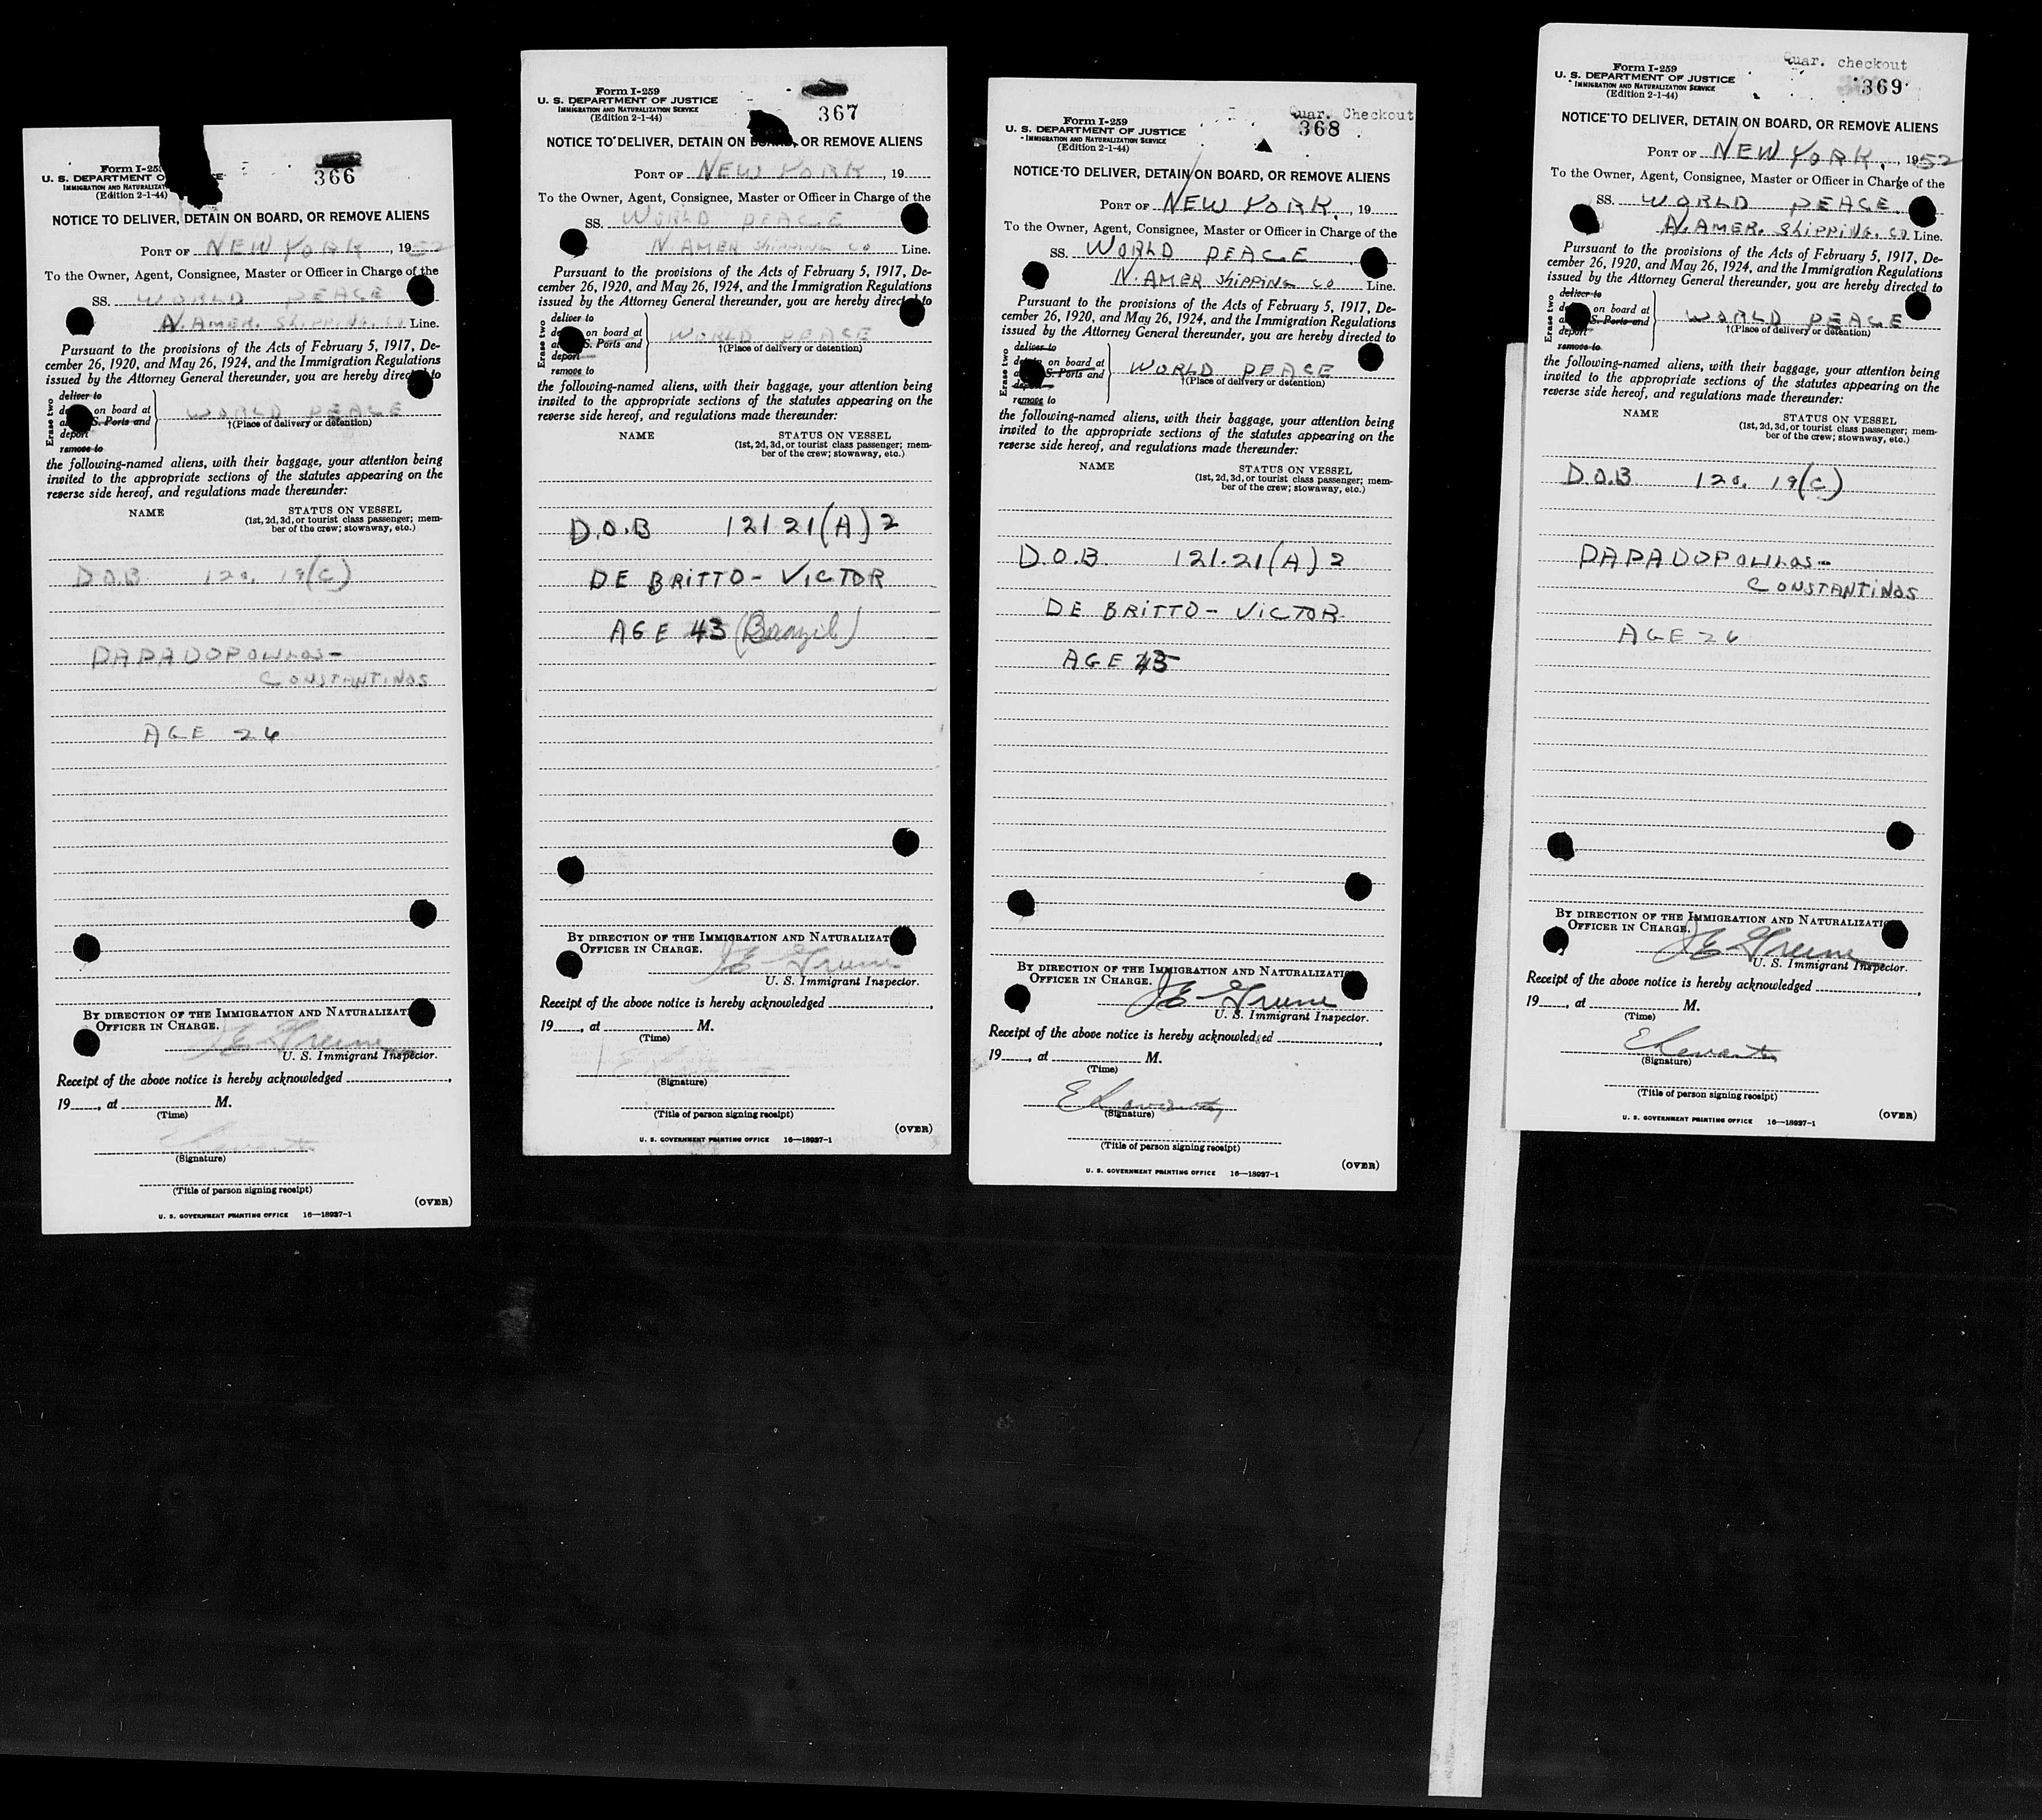 Form I-259
U. S. DEPARTMENT O
IMMIGRATION AND NATURALIZAT
(Edition 2-1-44)
366
NOTICE TO DELIVER, DETAIN ON BOARD, OR REMOVE ALIENS
PORT OF NEW YORK, 1952
To the Owner, Agent, Consignee, Master or Officer in Charge of the
SS. WORLD PEACE
N. AMER. SHIPPING. CO Line.
Pursuant to the provisions of the Acts of February 5, 1917, De-
cember 26, 1920, and May 26, 1924, and the Immigration Regulations
issued by the Attorney General thereunder, you are hereby directed to
Erase two
deliver to
on board at
S. Ports and
deport
remove to
WORLD PEACE
†(Place of delivery or detention)
the following-named aliens, with their baggage, your attention being
invited to the appropriate sections of the statutes appearing on the
reverse side hereof, and regulations made thereunder:
NAME
STATUS ON VESSEL
(1st, 2d, 3d, or tourist class passenger; mem-
ber of the crew; stowaway, etc.)
D.O.B 120. 19(C)
PAPADOPOULOS-
CONSTANTINOS
AGE 26
BY DIRECTION OF THE IMMIGRATION AND NATURALIZAT
OFFICER IN CHARGE.
J E Greene
U. S. Immigrant Inspector.
Receipt of the above notice is hereby acknowledged
19____, at ____ M.
(Time)
(Signature)
(Title of person signing receipt)
(OVER)
U. S. GOVERNMENT PRINTING OFFICE 16—18937-1
Form I-259
U. S. DEPARTMENT OF JUSTICE
IMMIGRATION AND NATURALIZATION SERVICE
(Edition 2-1-44)
367
NOTICE TO DELIVER, DETAIN ON BOARD, OR REMOVE ALIENS
PORT OF NEW YORK, 19
To the Owner, Agent, Consignee, Master or Officer in Charge of the
SS. WORLD PEACE
N. AMER SHIPPING CO Line.
Pursuant to the provisions of the Acts of February 5, 1917, De-
cember 26, 1920, and May 26, 1924, and the Immigration Regulations
issued by the Attorney General thereunder, you are hereby directed to
Erase two
deliver to
on board at
S. Ports and
deport
remove to
WORLD PEACE
†(Place of delivery or detention)
the following-named aliens, with their baggage, your attention being
invited to the appropriate sections of the statutes appearing on the
reverse side hereof, and regulations made thereunder:
NAME
STATUS ON VESSEL
(1st, 2d, 3d, or tourist class passenger; mem-
ber of the crew; stowaway, etc.)
D.O.B 121 21(A) 2
DE BRITTO - VICTOR
AGE 43 (Brazil)
BY DIRECTION OF THE IMMIGRATION AND NATURALIZAT
OFFICER IN CHARGE.
J E Greene
U. S. Immigrant Inspector.
Receipt of the above notice is hereby acknowledged
19____, at ____ M.
(Time)
(Signature)
(Title of person signing receipt)
(OVER)
U. S. GOVERNMENT PRINTING OFFICE 16—18937-1
Quar. Checkout
Form I-259
U. S. DEPARTMENT OF JUSTICE
IMMIGRATION AND NATURALIZATION SERVICE
(Edition 2-1-44)
368
NOTICE TO DELIVER, DETAIN ON BOARD, OR REMOVE ALIENS
PORT OF NEW YORK., 19
To the Owner, Agent, Consignee, Master or Officer in Charge of the
SS. WORLD PEACE
N. AMER SHIPPING CO Line.
Pursuant to the provisions of the Acts of February 5, 1917, De-
cember 26, 1920, and May 26, 1924, and the Immigration Regulations
issued by the Attorney General thereunder, you are hereby directed to
Erase two
deliver to
detain on board at
S. Ports and
deport
remove to
WORLD PEACE
†(Place of delivery or detention)
the following-named aliens, with their baggage, your attention being
invited to the appropriate sections of the statutes appearing on the
reverse side hereof, and regulations made thereunder:
NAME
STATUS ON VESSEL
(1st, 2d, 3d, or tourist class passenger; mem-
ber of the crew; stowaway, etc.)
D.O.B. 121.21(A) 2
DE BRITTO - VICTOR.
AGE 43
BY DIRECTION OF THE IMMIGRATION AND NATURALIZATIO
OFFICER IN CHARGE.
J E Greene
U. S. Immigrant Inspector.
Receipt of the above notice is hereby acknowledged
19____, at ____ M.
(Time)
(Signature)
(Title of person signing receipt)
(OVER)
U. S. GOVERNMENT PRINTING OFFICE 16—18937-1
Quar. checkout
Form I-259
U. S. DEPARTMENT OF JUSTICE
IMMIGRATION AND NATURALIZATION SERVICE
(Edition 2-1-44)
369
NOTICE TO DELIVER, DETAIN ON BOARD, OR REMOVE ALIENS
PORT OF NEW YORK., 1952
To the Owner, Agent, Consignee, Master or Officer in Charge of the
SS. WORLD PEACE.
N. AMER. SHIPPING. CO Line.
Pursuant to the provisions of the Acts of February 5, 1917, De-
cember 26, 1920, and May 26, 1924, and the Immigration Regulations
issued by the Attorney General thereunder, you are hereby directed to
Erase two
deliver to
on board at
S. Ports and
deport
remove to
WORLD PEACE
†(Place of delivery or detention)
the following-named aliens, with their baggage, your attention being
invited to the appropriate sections of the statutes appearing on the
reverse side hereof, and regulations made thereunder:
NAME
STATUS ON VESSEL
(1st, 2d, 3d, or tourist class passenger; mem-
ber of the crew; stowaway, etc.)
D.O.B 120. 19(C)
PAPADOPOULOS-
CONSTANTINOS
AGE 26
BY DIRECTION OF THE IMMIGRATION AND NATURALIZATIO
OFFICER IN CHARGE.
J E Greene
U. S. Immigrant Inspector.
Receipt of the above notice is hereby acknowledged
19____, at ____ M.
(Time)
(Signature)
(Title of person signing receipt)
(OVER)
U. S. GOVERNMENT PRINTING OFFICE 16—18937-1